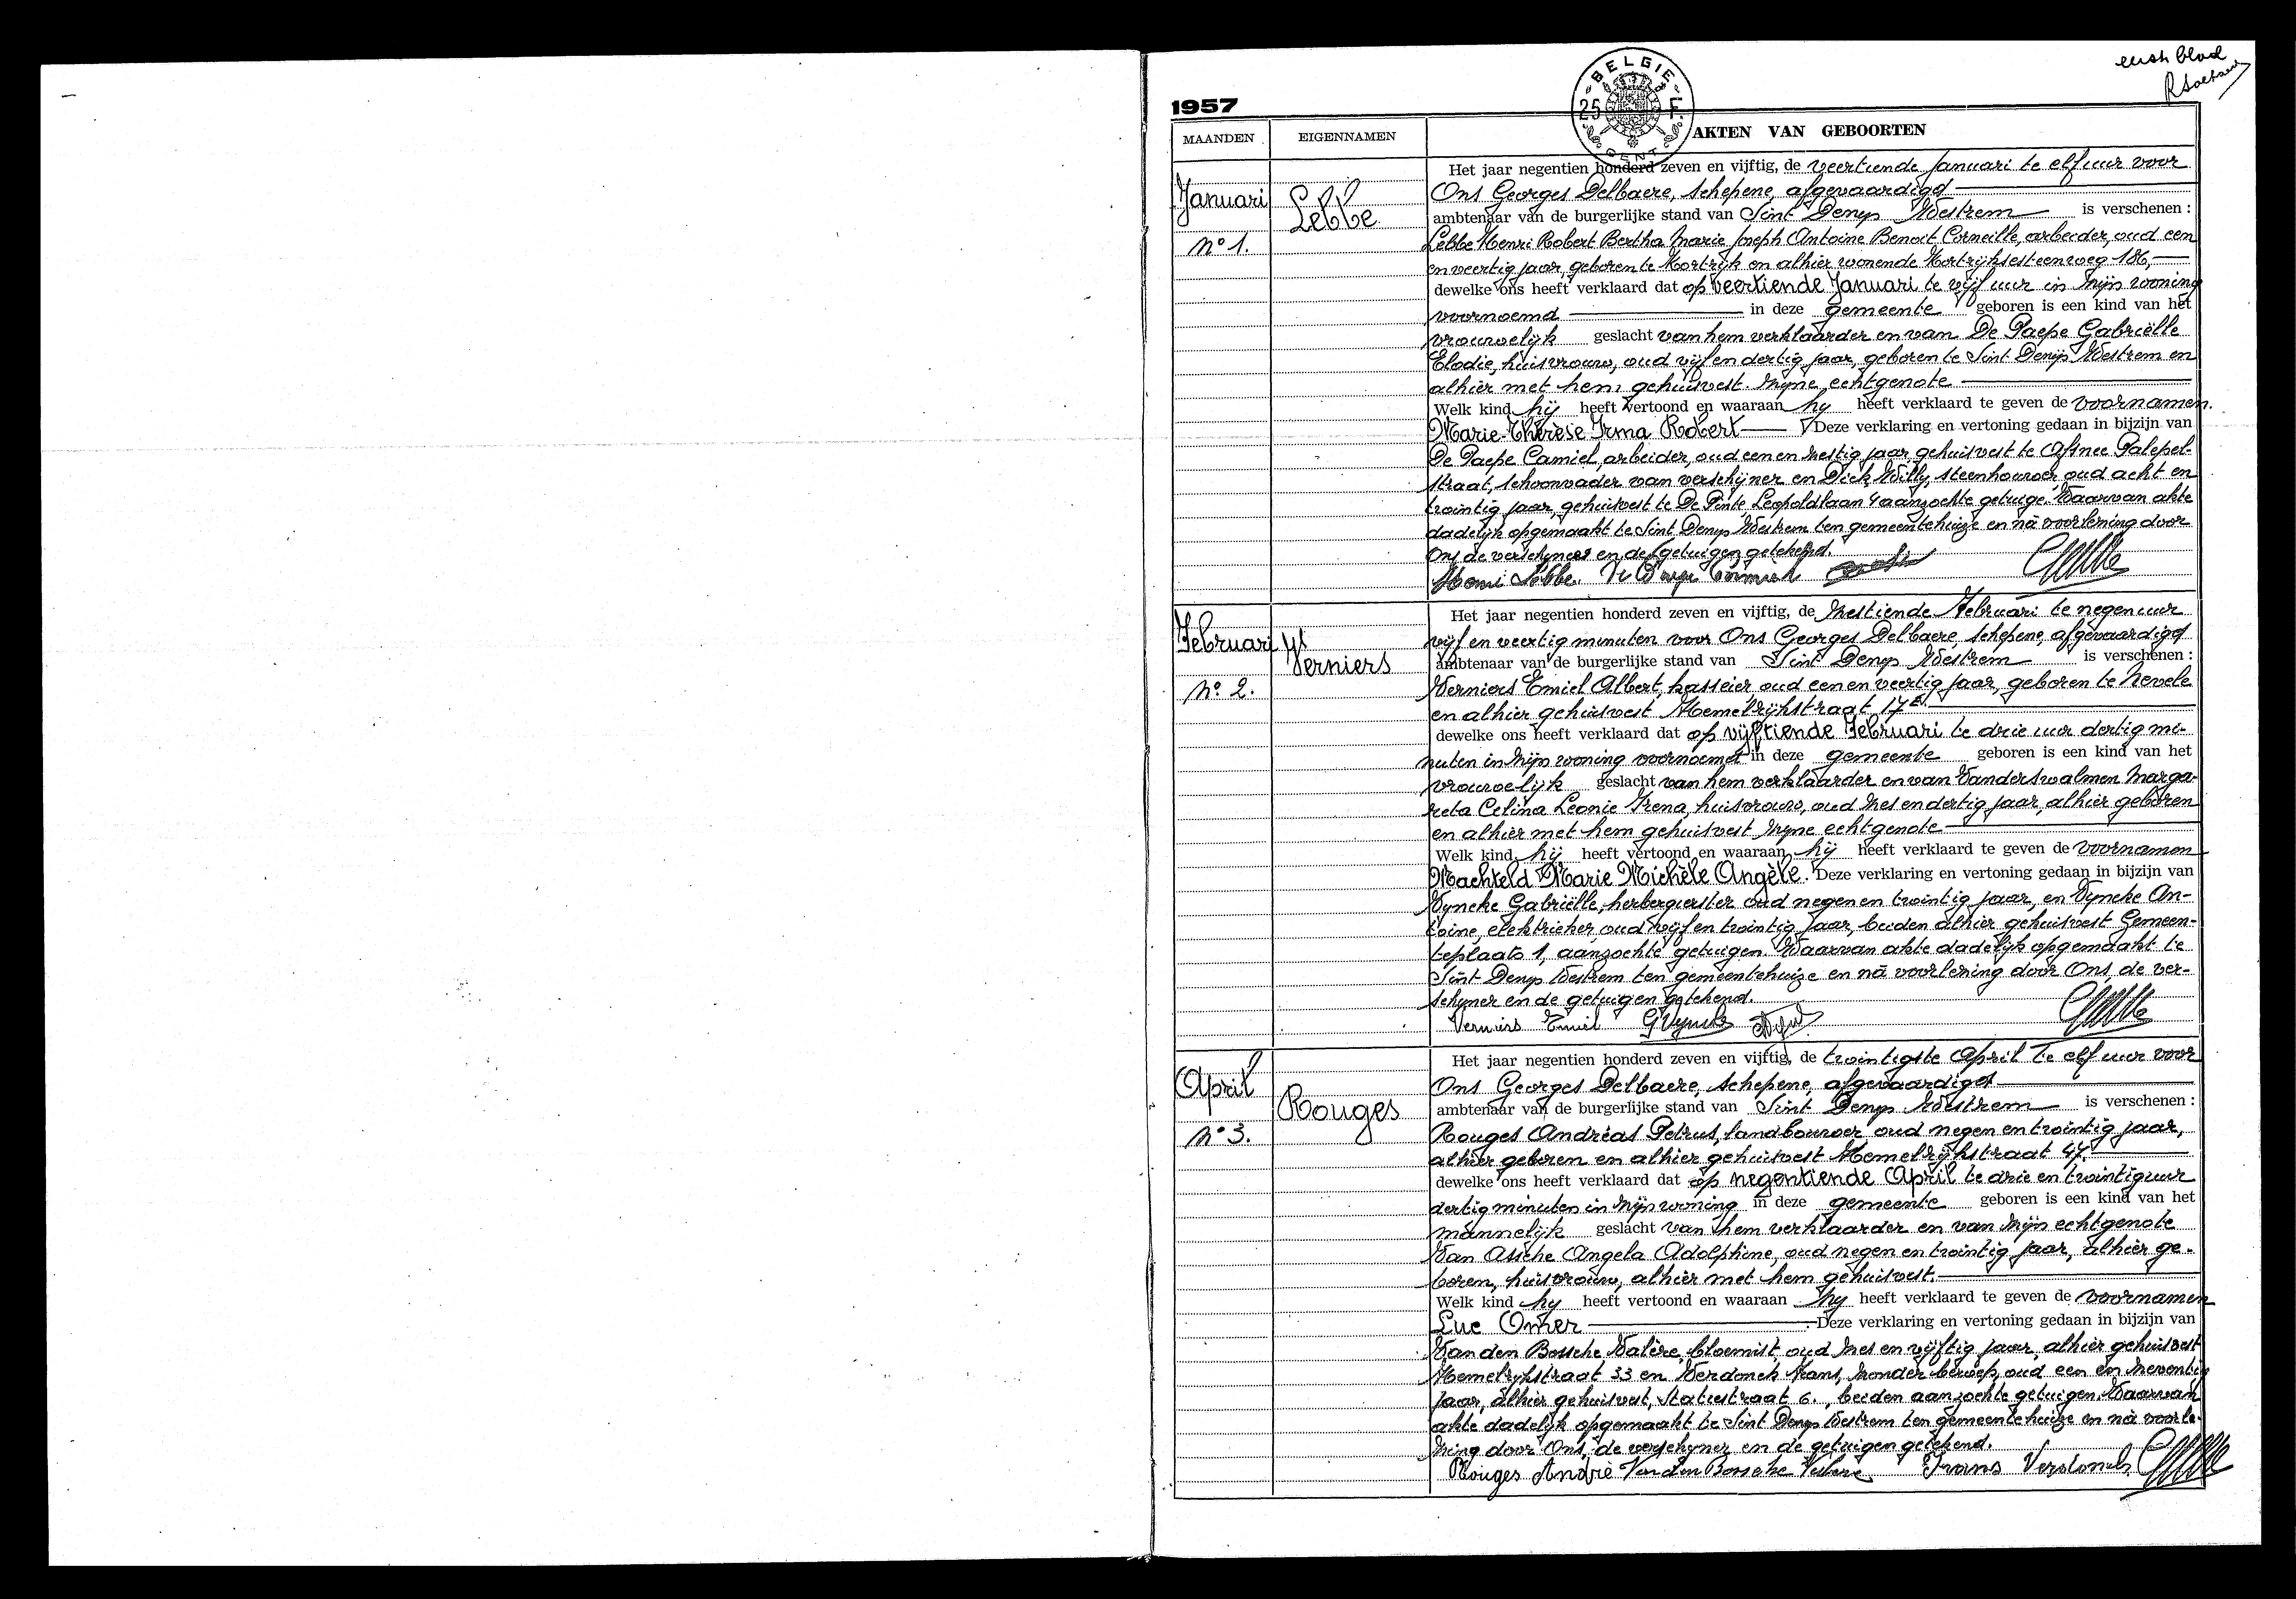 eerste blad
1957
BELGIE
25 F.
GENT
MAANDEN
EIGENNAMEN
AKTEN VAN GEBOORTEN
Januari
Lebbe
No 1.
Het jaar negentien honderd zeven en vijftig, de veertiende Januari te elf uur voor
Ons Georges Delbaere, schepene, afgevaardigd
ambtenaar van de burgerlijke stand van Sint Denys Westrem is verschenen :
Lebbe Henri Robert Bertha Marie Joseph Antoine Benoit Corneille, arbeider, oud een
en veertig jaar, geboren te Kortrijk en alhier wonende Kortrijksesteenweg 186,
dewelke ons heeft verklaard dat op veertiende Januari te vijf uur in zijn woning
voornoemd in deze gemeente geboren is een kind van het
vrouwelijk geslacht van hem verklaarder en van De Paepe Gabriëlle
Elodie, huisvrouw, oud vijf en dertig jaar, geboren te Sint Denijs Westrem en
alhier met hem gehuisvest. zijne echtgenote
Welk kind hij heeft vertoond en waaraan hij heeft verklaard te geven de voornamen.
Marie-Thérèse Irma Robert Deze verklaring en vertoning gedaan in bijzijn van
De Paepe Camiel, arbeider, oud een en zestig jaar, gehuisvest te Afsnee Palepel-
straat, schoonvader van verschijner en Dick Willy, steenhouwer, oud acht en
twintig jaar, gehuisvest te De Pinte Leopoldlaan 4 aanzochte getuige. Waarvan akte
dadelijk opgemaakt te Sint Denys Westrem ten gemeentehuize en nà voorlezing door
Ons de verschijner en de getuigen getekend.
Henri Lebbe. De Paepe Camiel
Februari
Verniers
No 2.
Het jaar negentien honderd zeven en vijftig, de zestiende Februari te negen uur
vijf en veertig minuten voor Ons Georges Delbaere, schepene, afgevaardigd
ambtenaar van de burgerlijke stand van Sint Denys Westrem is verschenen :
Verniers Emiel Albert, kasseier, oud een en veertig jaar, geboren te Nevele
en alhier gehuisvest Hemelrijkstraat 17
dewelke ons heeft verklaard dat op vijftiende Februari te drie uur dertig mi-
nuten in zijn woning voornoemd in deze gemeente geboren is een kind van het
vrouwelijk geslacht van hem verklaarder en van Vanderswalmen Marga-
reta Celina Leonie Irena, huisvrouw, oud zes en dertig jaar, alhier geboren
en alhier met hem gehuisvest zijne echtgenote
Welk kind hij heeft vertoond en waaraan hij heeft verklaard te geven de voornamen
Machteld Marie Michèle Angèle. Deze verklaring en vertoning gedaan in bijzijn van
Vyncke Gabriëlle, herbergierster oud negen en twintig jaar, en Vyncke An-
toine, elektrieker, oud vijf en twintig jaar, beiden alhier gehuisvest Gemeen-
teplaats 1, aanzochte getuigen. Waarvan akte dadelijk opgemaakt te
Sint-Denys Westrem ten gemeentehuize en nà voorlezing door Ons de ver-
schijner en de getuigen getekend.
Verniers Emiel GVyncke
April
Rouges
No 3.
Het jaar negentien honderd zeven en vijftig, de twintigste April te elf uur voor
Ons Georges Delbaere, schepene, afgevaardigd
ambtenaar van de burgerlijke stand van Sint Denys Westrem is verschenen :
Rouges Andréas Petrus, landbouwer oud negen en twintig jaar,
alhier geboren en alhier gehuisvest Hemelrijkstraat 47.
dewelke ons heeft verklaard dat op negentiende April te drie en twintig uur
dertig minuten in zijn woning in deze gemeente geboren is een kind van het
mannelijk geslacht van hem verklaarder en van zijn echtgenote
Van Assche Angela Adolphine, oud negen en twintig jaar, alhier ge-
boren, huisvrouw, alhier met hem gehuisvest.
Welk kind hy heeft vertoond en waaraan hy heeft verklaard te geven de voornamen
Luc Omer Deze verklaring en vertoning gedaan in bijzijn van
Van den Bossche Valère, bloemist, oud zes en vijftig jaar, alhier gehuisvest
Hemelrijkstraat 33 en Verdonck Frans, zonder beroep, oud een en zeventig
jaar, alhier gehuisvest, Statiestraat 6., beiden aanzochte getuigen. Waarvan
akte dadelijk opgemaakt te Sint Denys Westrem ten gemeentehuize en nà voorle-
zing door Ons, de verschijner en de getuigen getekend.
Rouges André Van den Bossche Valere Frans Verdonck